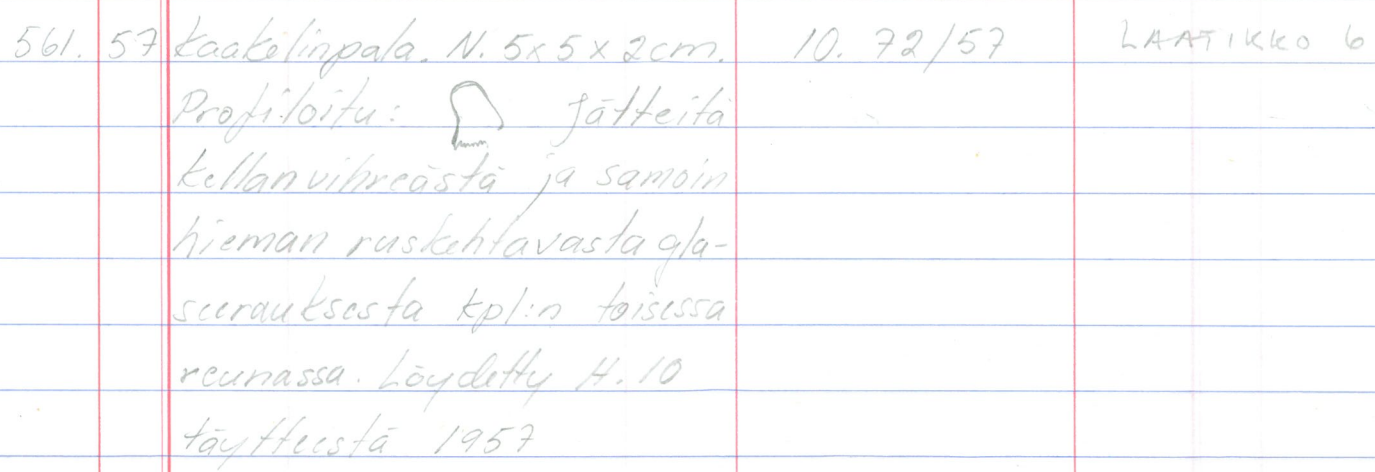 561. 57 Kaakelinpala. N. 5x5x2cm. 10. 72/57 LAATIKKO 6
Profiloitu: Jätteitä
kellanvihreästä ja samoin
hieman ruskehtavasta gla-
seerauksesta kpl:n toisessa
reunassa. Löydetty H. 10
täytteestä 1957